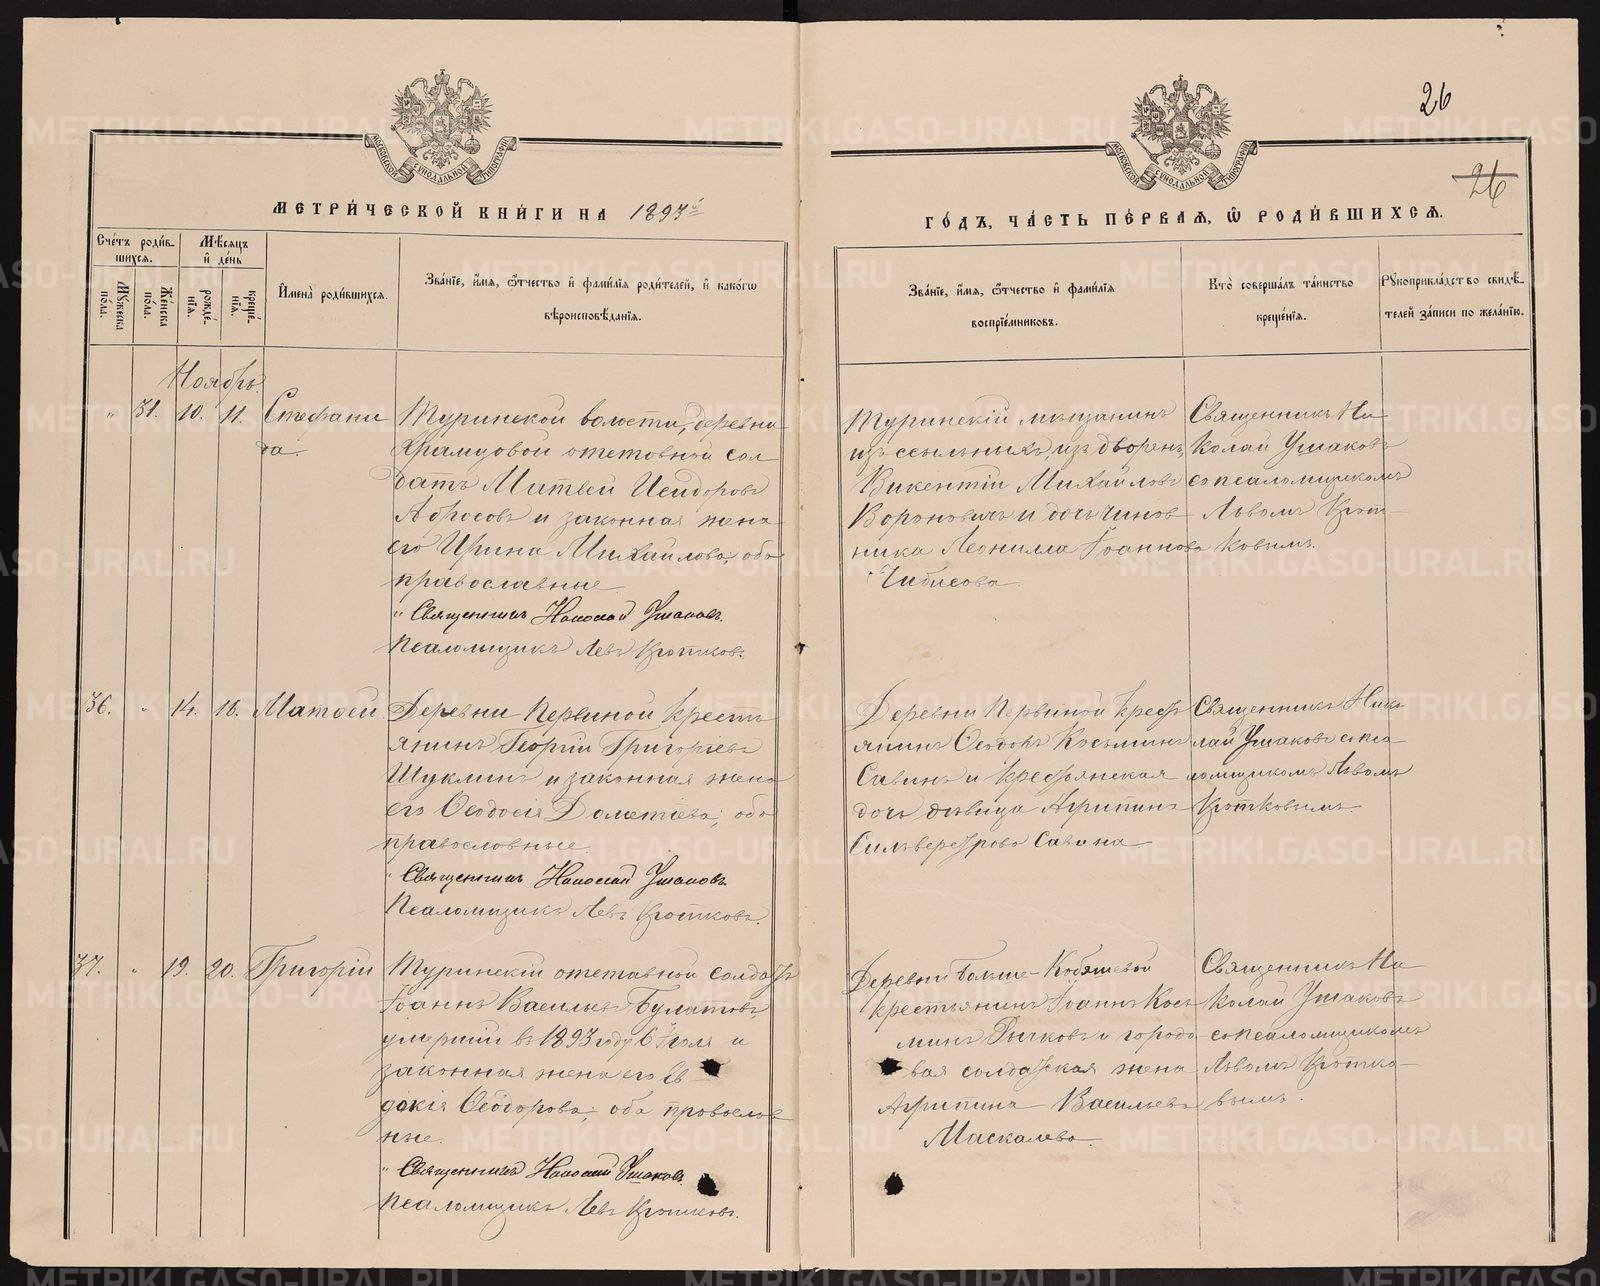 26
26
МЕТРИ́ЧЕСКОЙ КНИ́ГИ НА 1893й
ГО́ДЪ, ЧА́СТЬ ПЕ́РВАЯ, Ѿ РОДИ́ВШИХСЯ.
Сче́тъ роди́в-
шихся.
Му́жеска
по́ла.
Же́нска
по́ла.
Мѣ́сяцъ
и҆ де́нь
рожде́-
нїя.
креще́-
нїя.
И҆мена̀ роди́вшихся.
Зва́нїе, и҆́мя, ѻ҆́тчество и҆ фами́лїя роди́телей, и҆ како́гѡ
вѣроисповѣ́данїя.
Зва́нїе, и҆́мя, ѻ҆́тчество и҆ фами́лїя
воспрїе́мниковъ.
Кто̀ соверша́лъ та́инство
креще́нїя.
Рꙋкоприкла́дство свидѣ́-
телей за́писи по жела́нїю.
Ноябрь.
" 31. 10. 11. Стефани
да.
Туринской волости, деревни
Храмцовой отставной сол
датъ Матвей Исидоровъ
Абросовъ и законная жена
его Ирина Михайлова, оба
православные.
Священникъ Николай Ушаковъ.
Псаломщикъ Левъ Кротковъ.
Туринскій мещанинъ
изъ ссыльныхъ, изъ дворянъ,
Викентій Михайловъ
Вороновичъ и дочь чинов
ника Леонилла Іоаннова
Чибисова.
Священникъ Ни
колай Ушаковъ
со псаломщикомъ
Львомъ Крот-
ковымъ.
36. " 14. 16. Матѳей.
Деревни Первиной крестъ
янинъ Георгій Григоріевъ
Шуклинъ и законная жена
его Ѳеодосія Дометіева, оба
православные.
Священникъ Николай Ушаковъ.
Псаломщикъ Левъ Кротковъ.
Деревни Первиной крестъ
янинъ Ѳеодоръ Косьминъ
Савинъ и крестьянская
дочь девица Агрипина
Сильверстрова Савина
Священникъ Нико
лай Ушаковъ со пса-
ломщикомъ Львомъ
Кротковымъ.
37. " 19. 20. Григорій
Туринскій отставной солдатъ
Іоаннъ Васильевъ Булатовъ,
умершій въ 1893 году 6 Іюля и
законная жена его Ев-
докія Ѳеодорова, оба православ
ные.
Священникъ Николай Ушаковъ.
Псаломщикъ Левъ Кротковъ.
Деревни Больше-Кобяшевой
крестьянинъ Іоаннъ Кось
минъ Рычковъ и городо
вая солдатская жена
Агрипина Васильева
Маскалева
Священникъ Ни
колай Ушаковъ
со псаломщикомъ
Львомъ Кротко-
вымъ.
METRIKI.GASO-URAL.RU